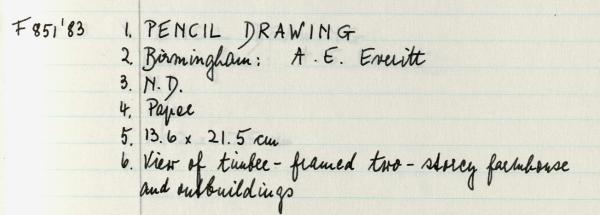 F851'83 1. PENCIL DRAWING
2. Birmingham: A. E. Everitt
3. N.D.
4. Paper
5. 13.6 x 21.5 cm
6. View of timber-framed two-storey farmhouse
and outbuildings